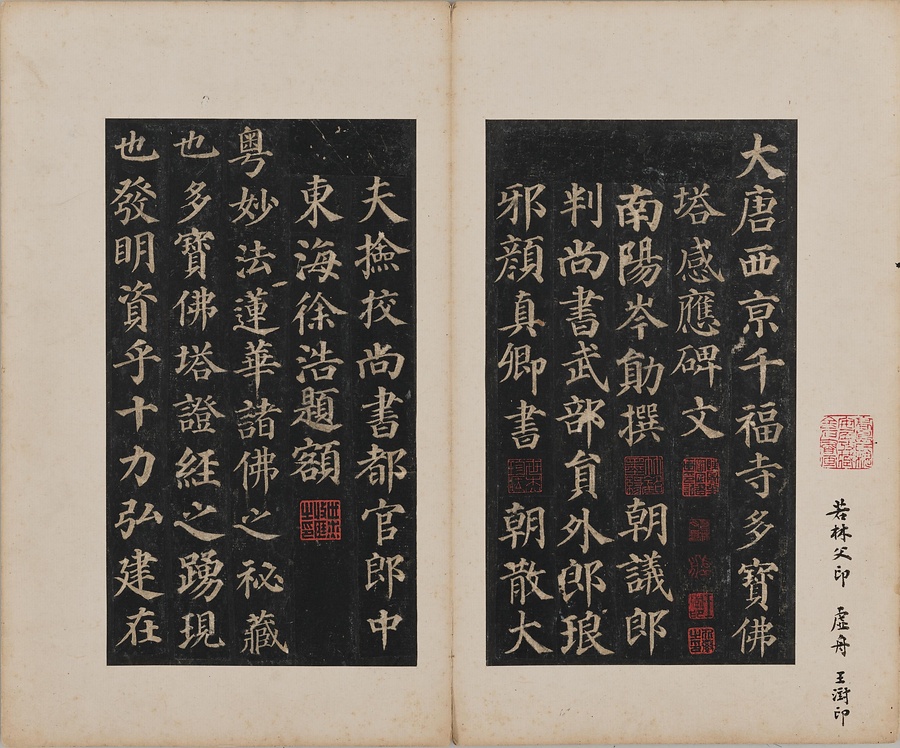 若林父印 虛舟 王澍印
大唐西京千福寺多寶佛
塔感應碑文
南陽岑勛撰 朝議郎
判尚書武部員外郎琅
邪顏真卿書 朝散大
夫撿挍尚書都官郎中
東海徐浩題額
粵妙法蓮華諸佛之祕藏
也多寶佛塔證經之踴現
也發明資乎十力弘建在